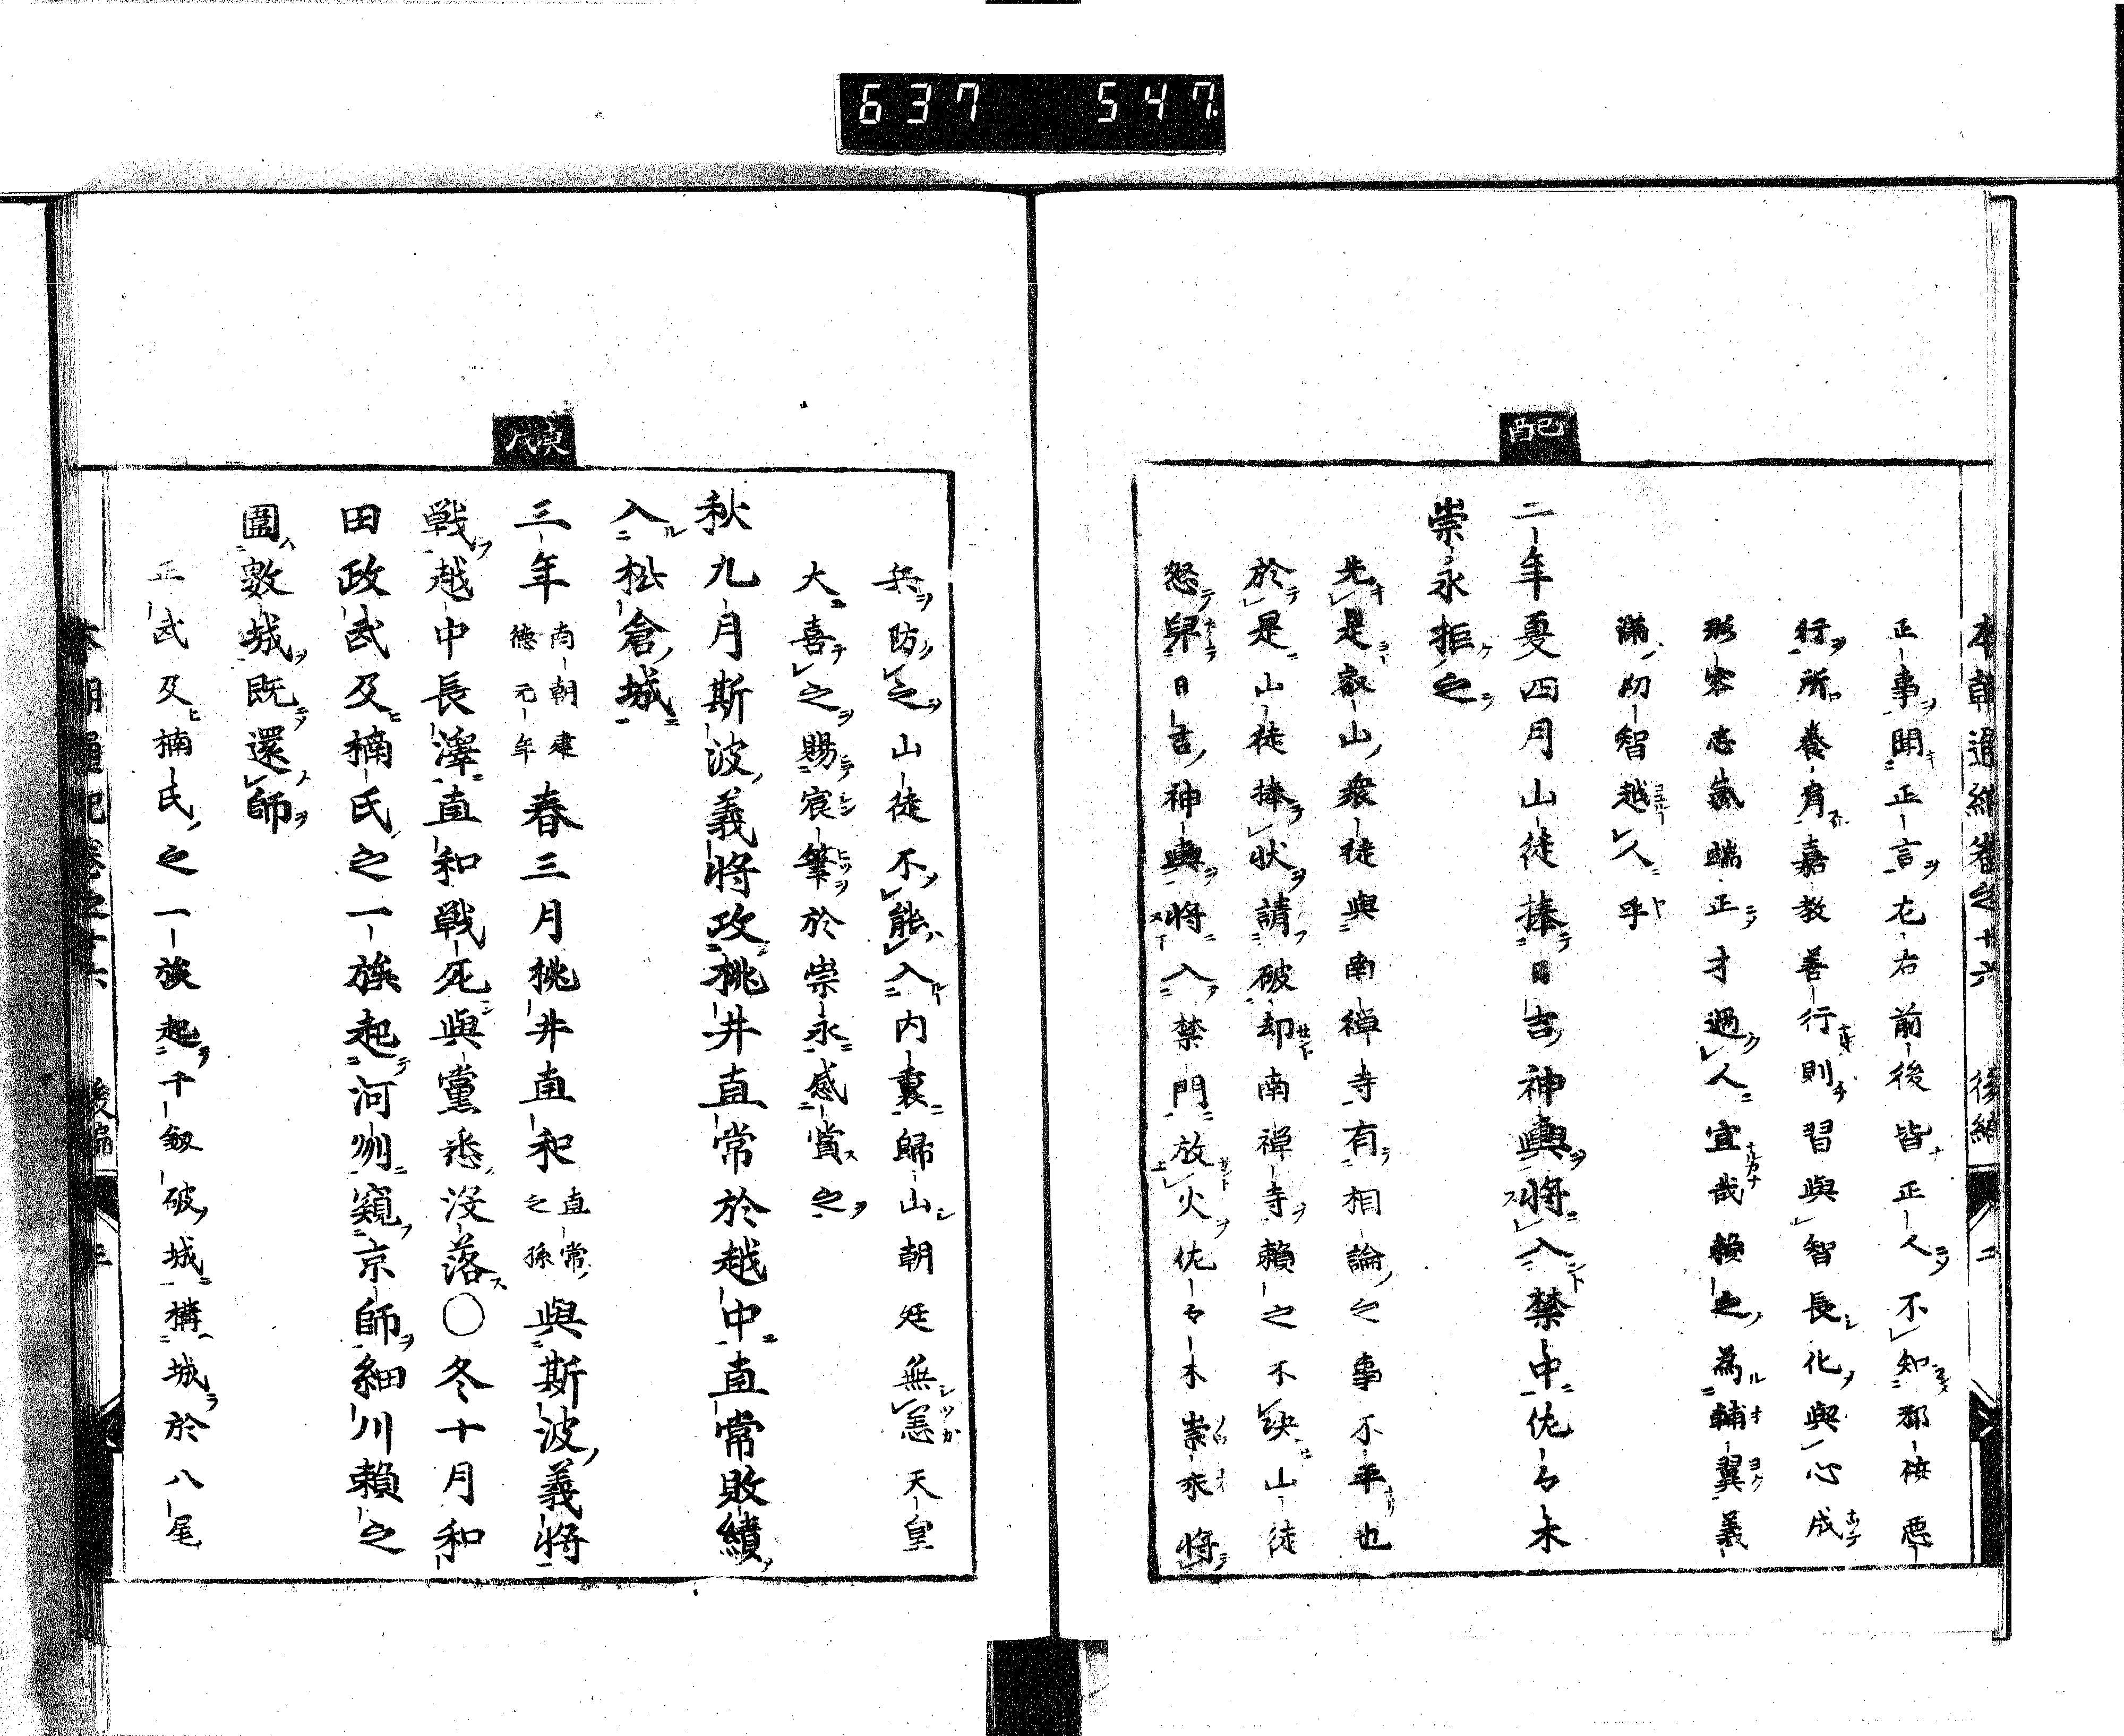 637 547
本朝通紀卷之十六 後編 二
正事聞正言左右前後皆正人不知邪按惡
行所養育嘉教善行則習與智長化與心成
形容志氣端正才過人宜哉賴之為輔翼義
滿幼智越人乎
己酉
二年夏四月山徒捧日吉神輿將入禁中佐々木
崇永拒之
先是叡山衆徒與南禪寺有相論之事不平也
於是山徒捧狀請破却南禪寺賴之不決山徒
怒舁日吉神輿將入禁門放火佐々木崇永將
兵防之山徒不能入内裏歸山朝廷無恙天皇
大喜之賜宸筆於崇永感賞之
秋九月斯波義將攻桃井直常於越中直常敗績
入松倉城
庚戌
三年南朝建德元年春三月桃井直和直常之孫與斯波義將
戰越中長澤直和戰死與黨悉沒落○冬十月和
田政武及楠氏之一族起河刕窺京師細川賴之
圍數城既還師
正武及楠氏之一族起千釼破城構城於八尾
本朝通紀卷之十六 後編 三